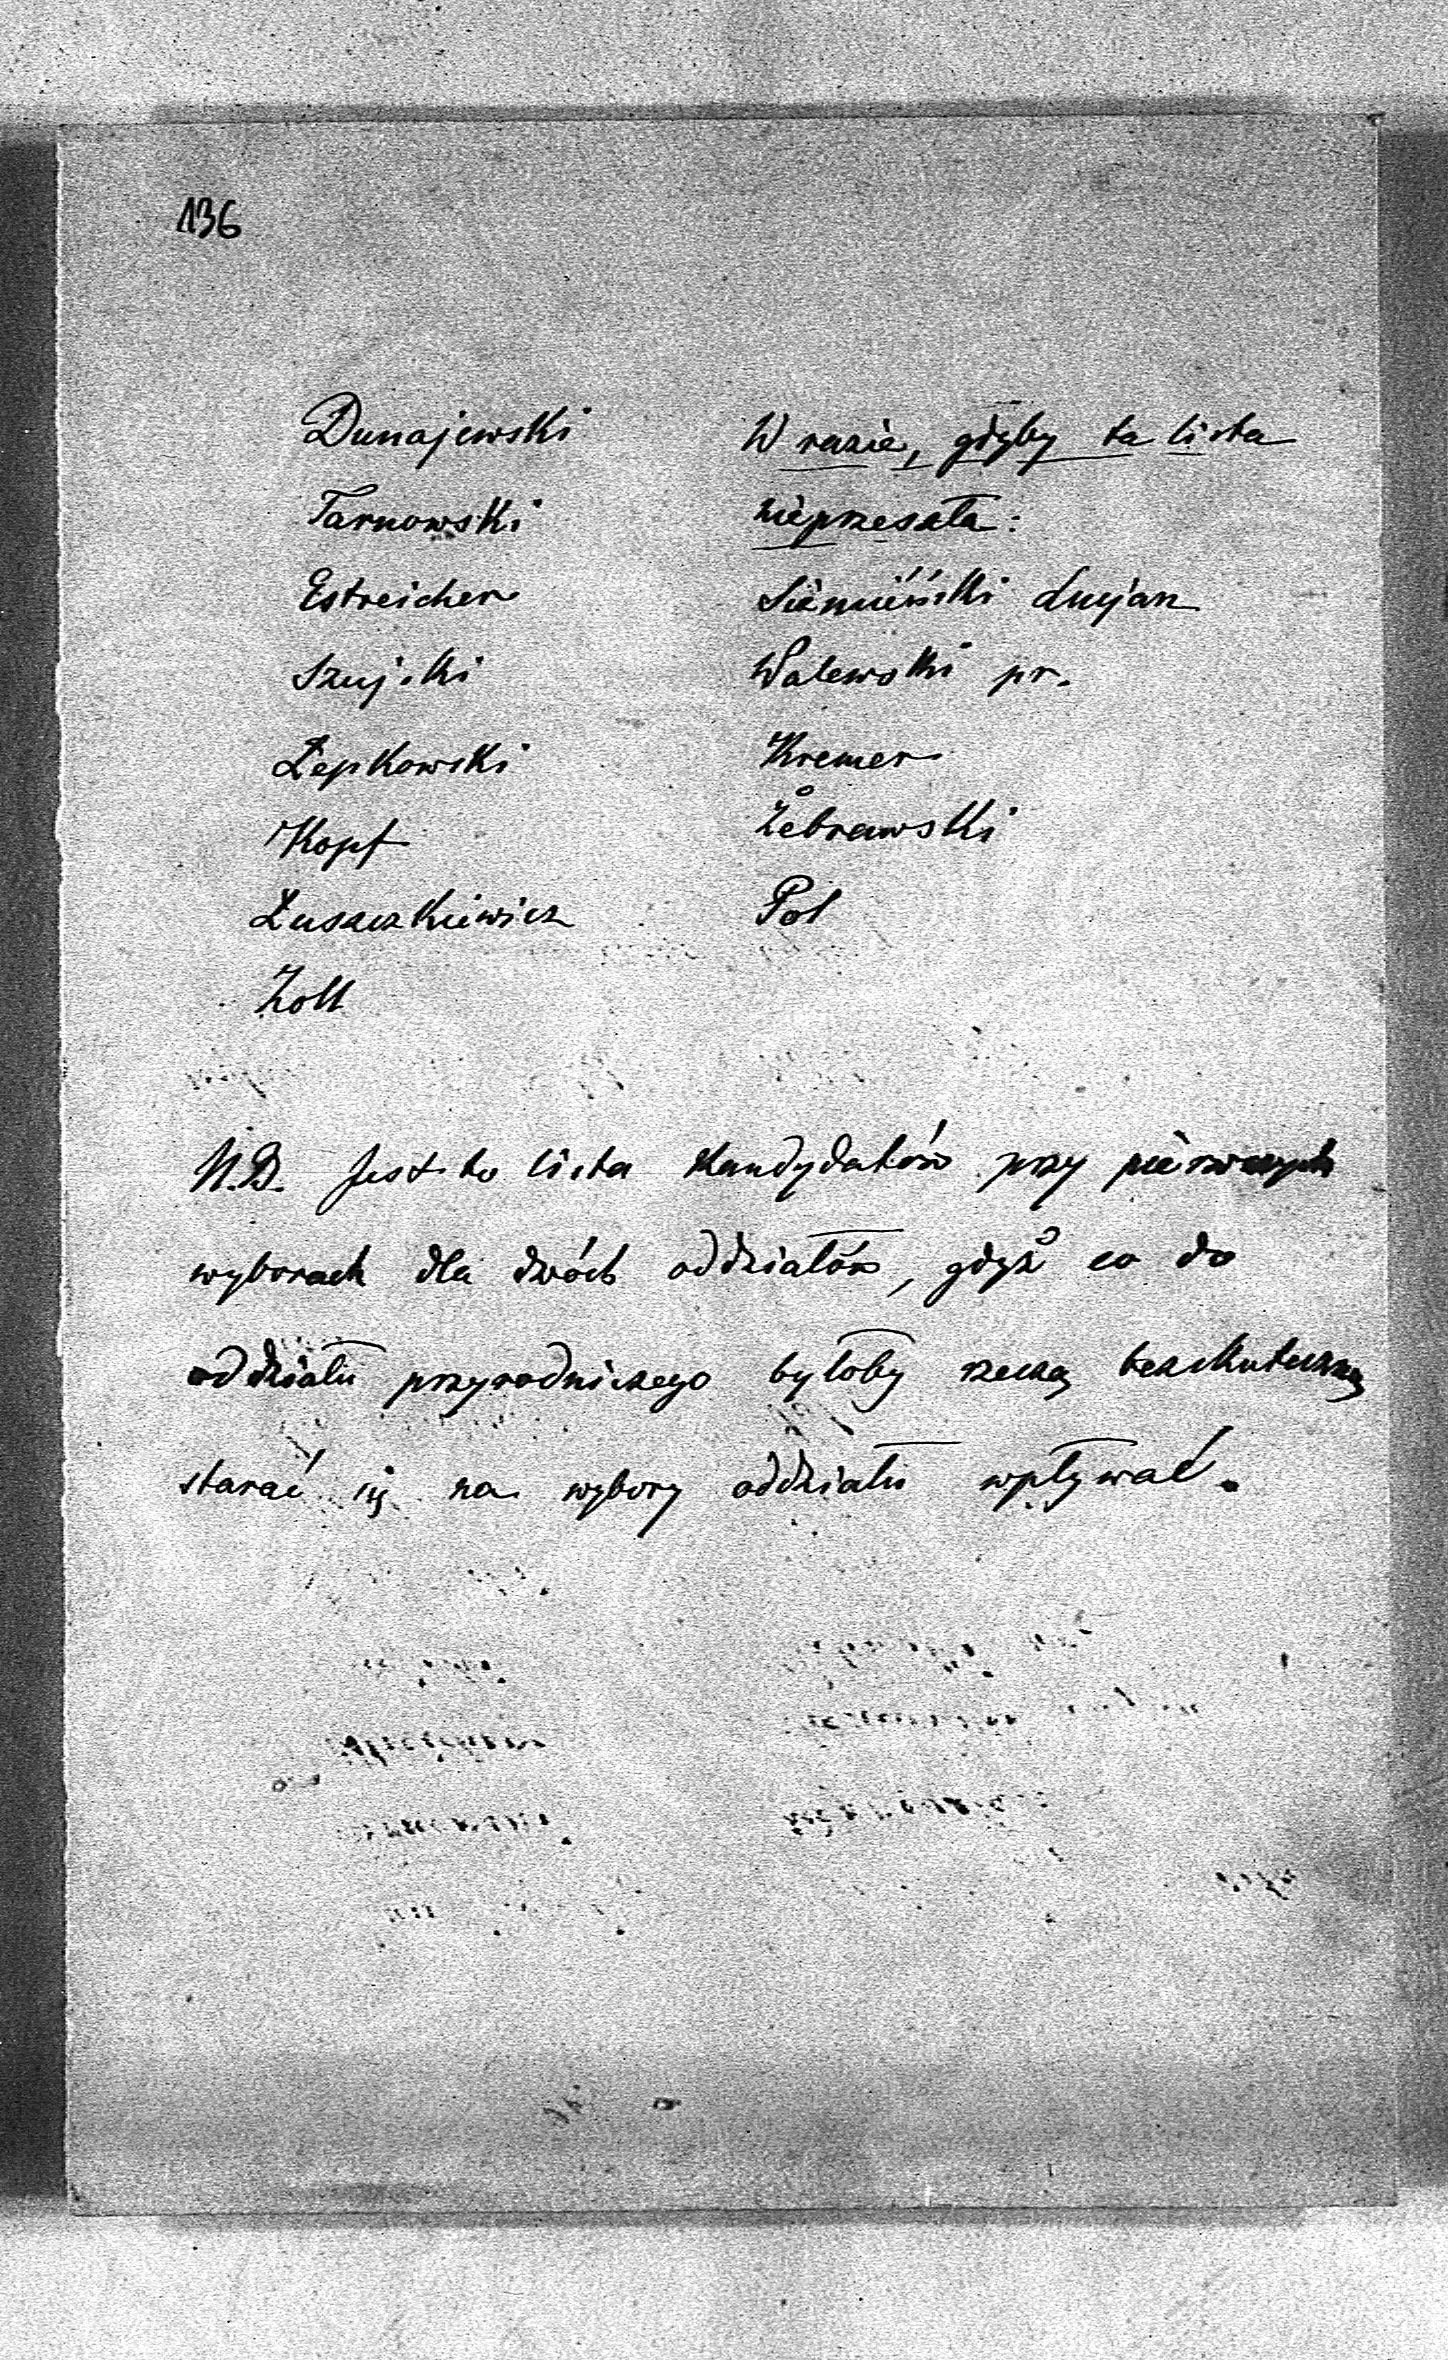 136
Dunajewski
Tarnowski
Estreicher
Szujski
Łepkowski
Kopf
Łuszczkiewicz
Zoll
W razie, gdyby ta lista
nieprzeszła:
Siemieński Lucjan
Walewski pr.
Kremer
Żebrawski
Pol
N.B. Jest to lista kandydatów przy pierwszych
wyborach dla dwóch oddziałów, gdyż co do
oddziału przyrodniczego byłoby rzeczą bezskuteczną
starać się na wybory oddziału wpływać.